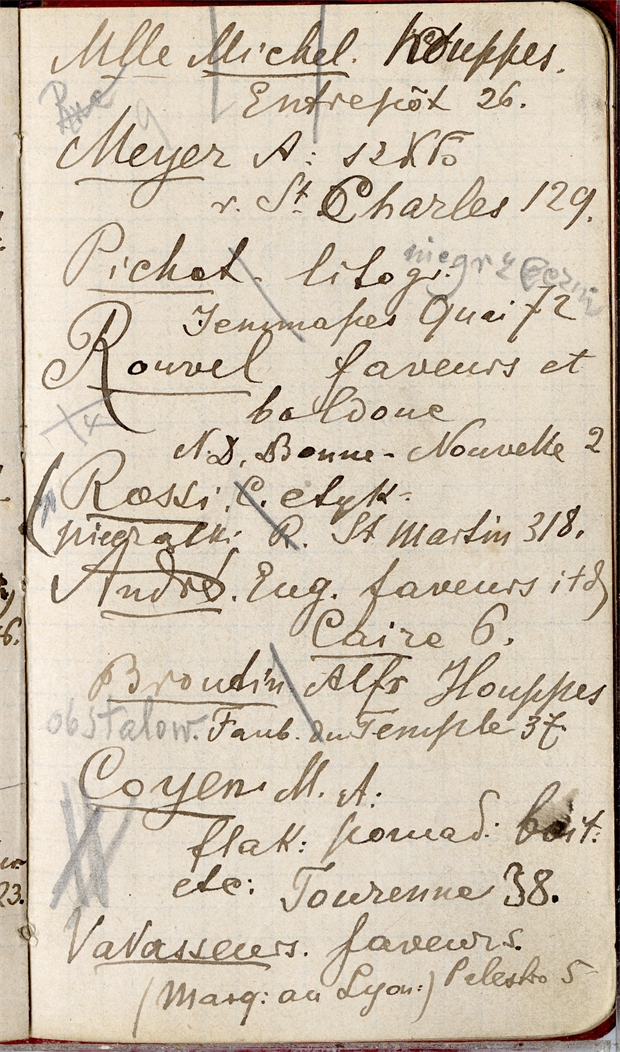 Mlle Michel. Houppes.
Entrepôt 26.
Meyer A: szkło
r. St. Charles 129.
Pichot. litogr. niegrzeczni
Jemmapes Quai 72
Rouvel faveurs et
bolduc
N.D. Bonne-Nouvelle 2
Rossi. C. etyk-
R. St Martin 318.
André. Eug. faveurs itd
Caire 6.
Broudin Alfr Houppes
obstalow. Faub. du Temple 37
Coyen M. A:
flak: pomad: boit:
etc: Tourenne 38.
Vavasseurs. faveurs.
(Marq: au Lyon:) Palestro 5